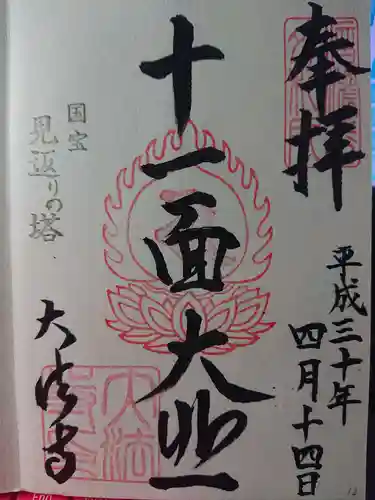 奉拝
平成三十年
四月十四日
十一面大悲
国宝
見返りの塔
大法寺
大法